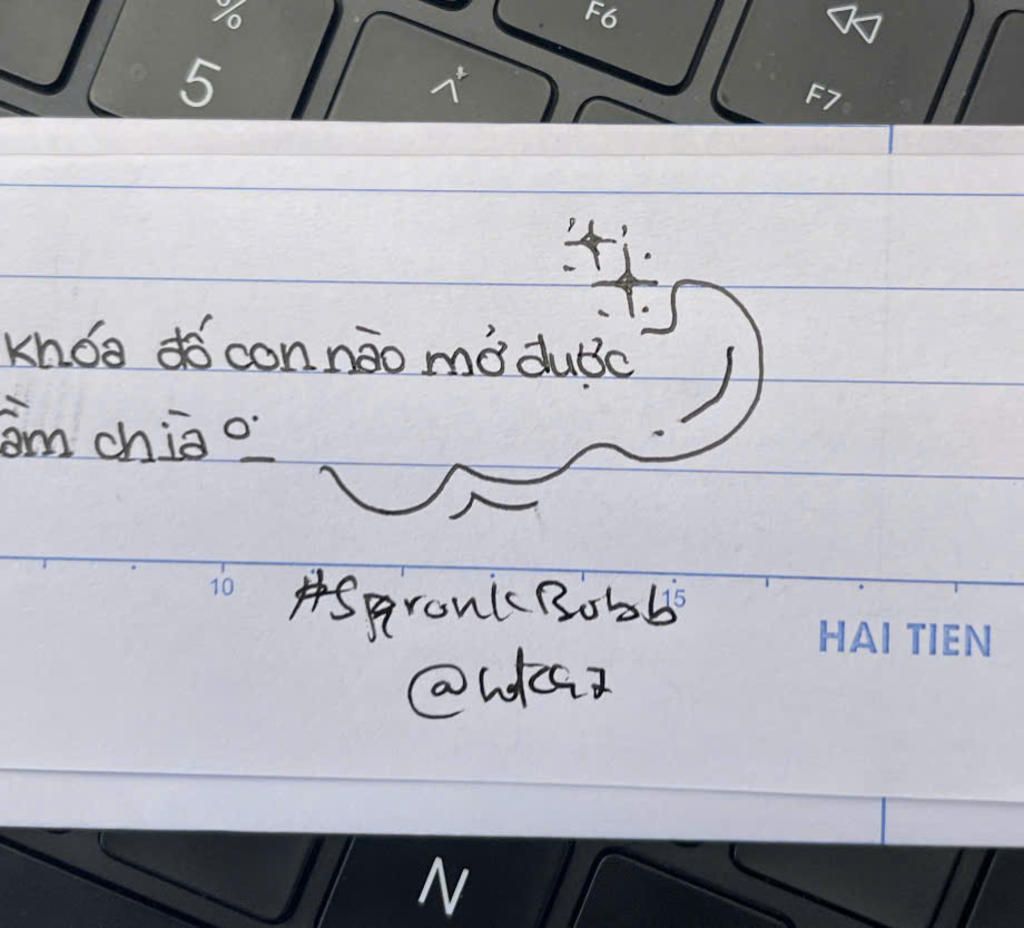 %
5
^
F6
F7
khóa đố con nào mở được
ầm chìa
10
15
#SpronkBobb
HAI TIEN
N